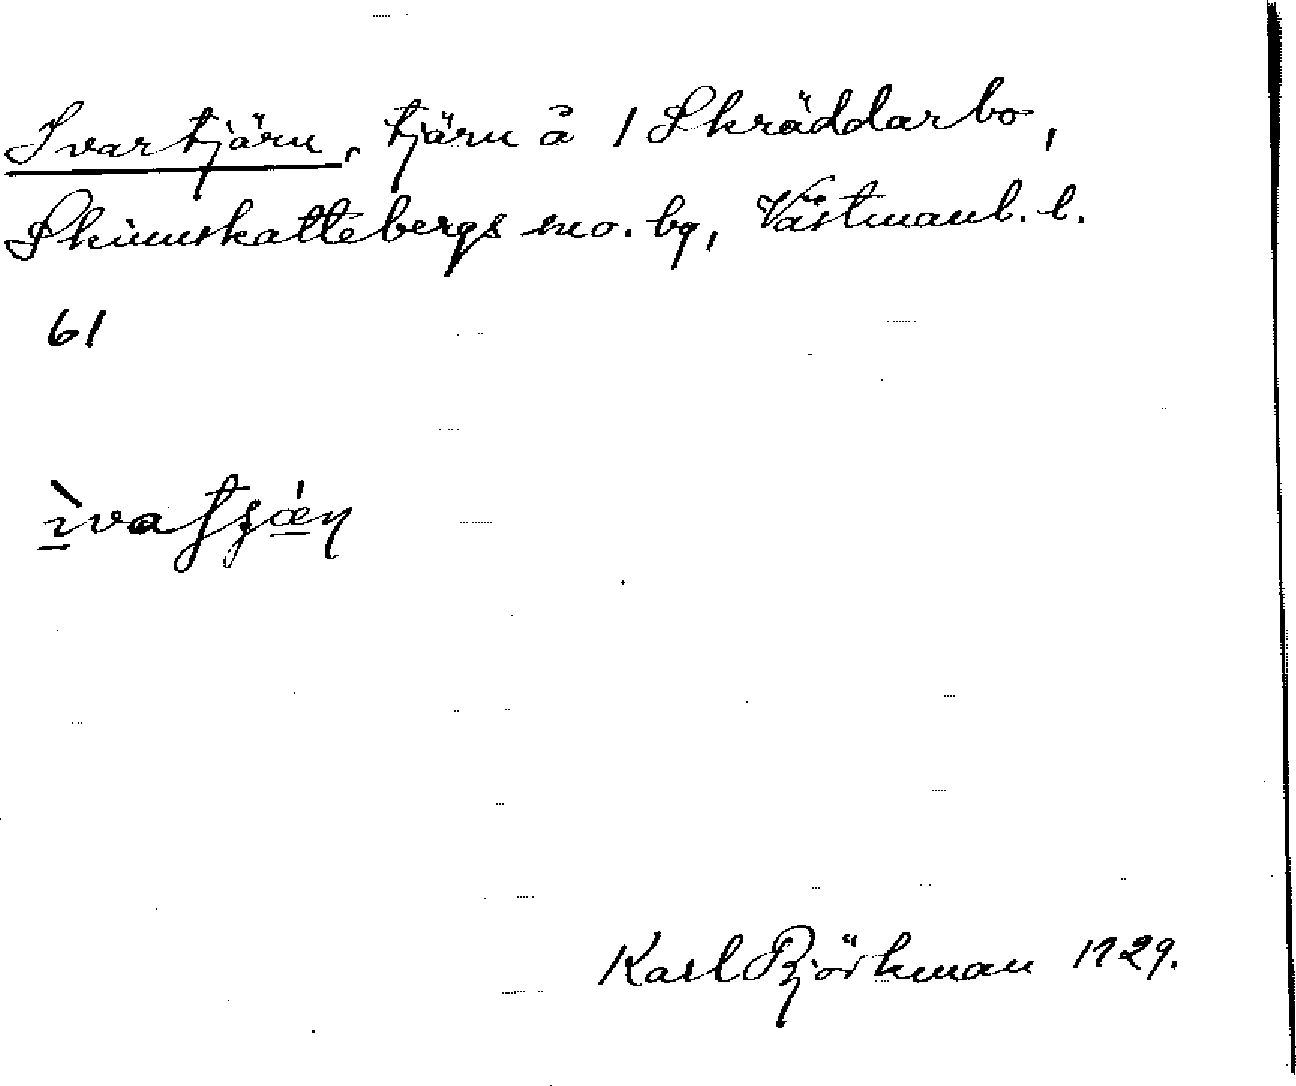 Svartjärn, tjärn å 1 Skräddarbo,
Skinnskattebergs sno. bg, Västmanl. l.
61
Karl Björkman 1929.